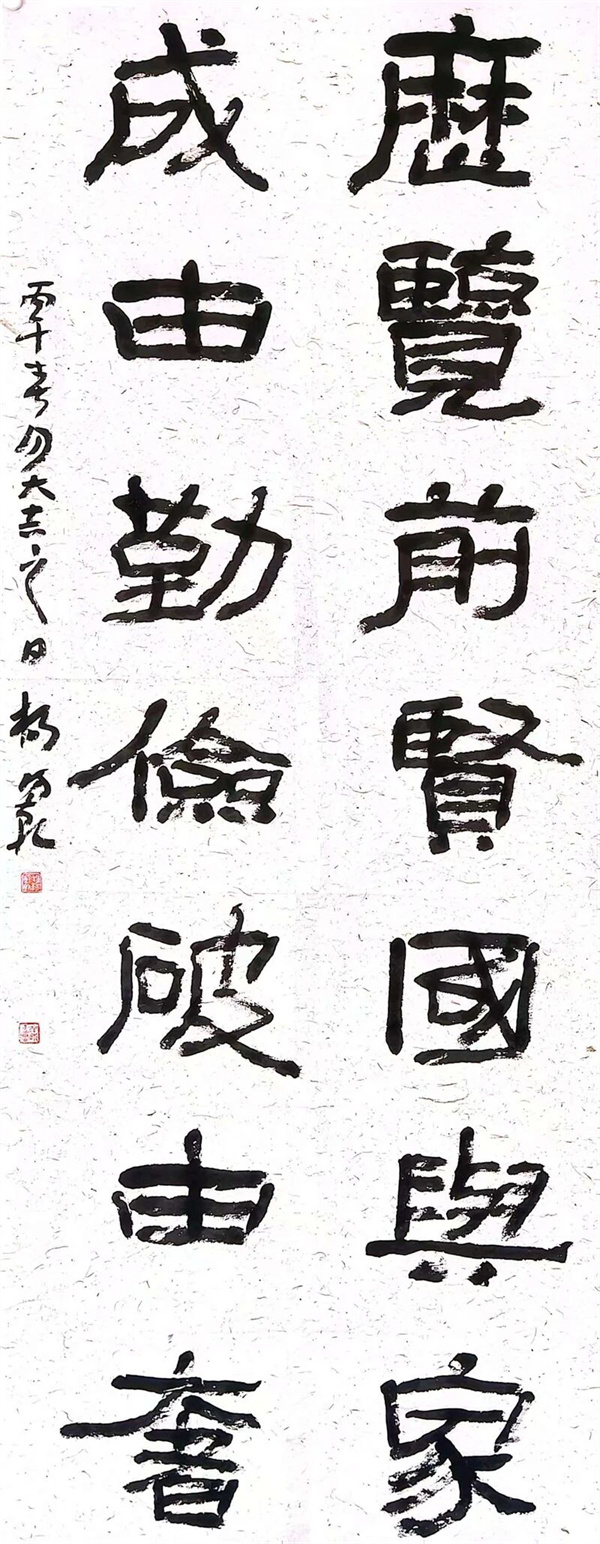 歷覽前賢國與家
成由勤儉破由奢
大吉之日